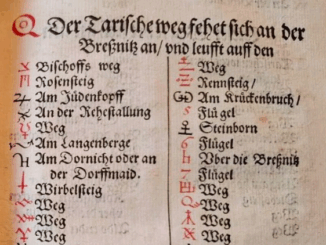 Der Tarische weg fehet sich an der
Breßnitz an/ vnd leufft auff den
Bischoffs weg
Rosensteig
Am Jüdenkopff
An der Rehestallung
Weg
Am Langenberge
Am Dornicht oder an
der Dorffmaid.
Wirbelsteig
Weg
Weg
Weg
Weg
Rennsteig/
Am Krückenbruch/
Flügel
Steinborn
Flügel
Vber die Breßnitz
Flügel
Weg
Weg
Weg
Weg